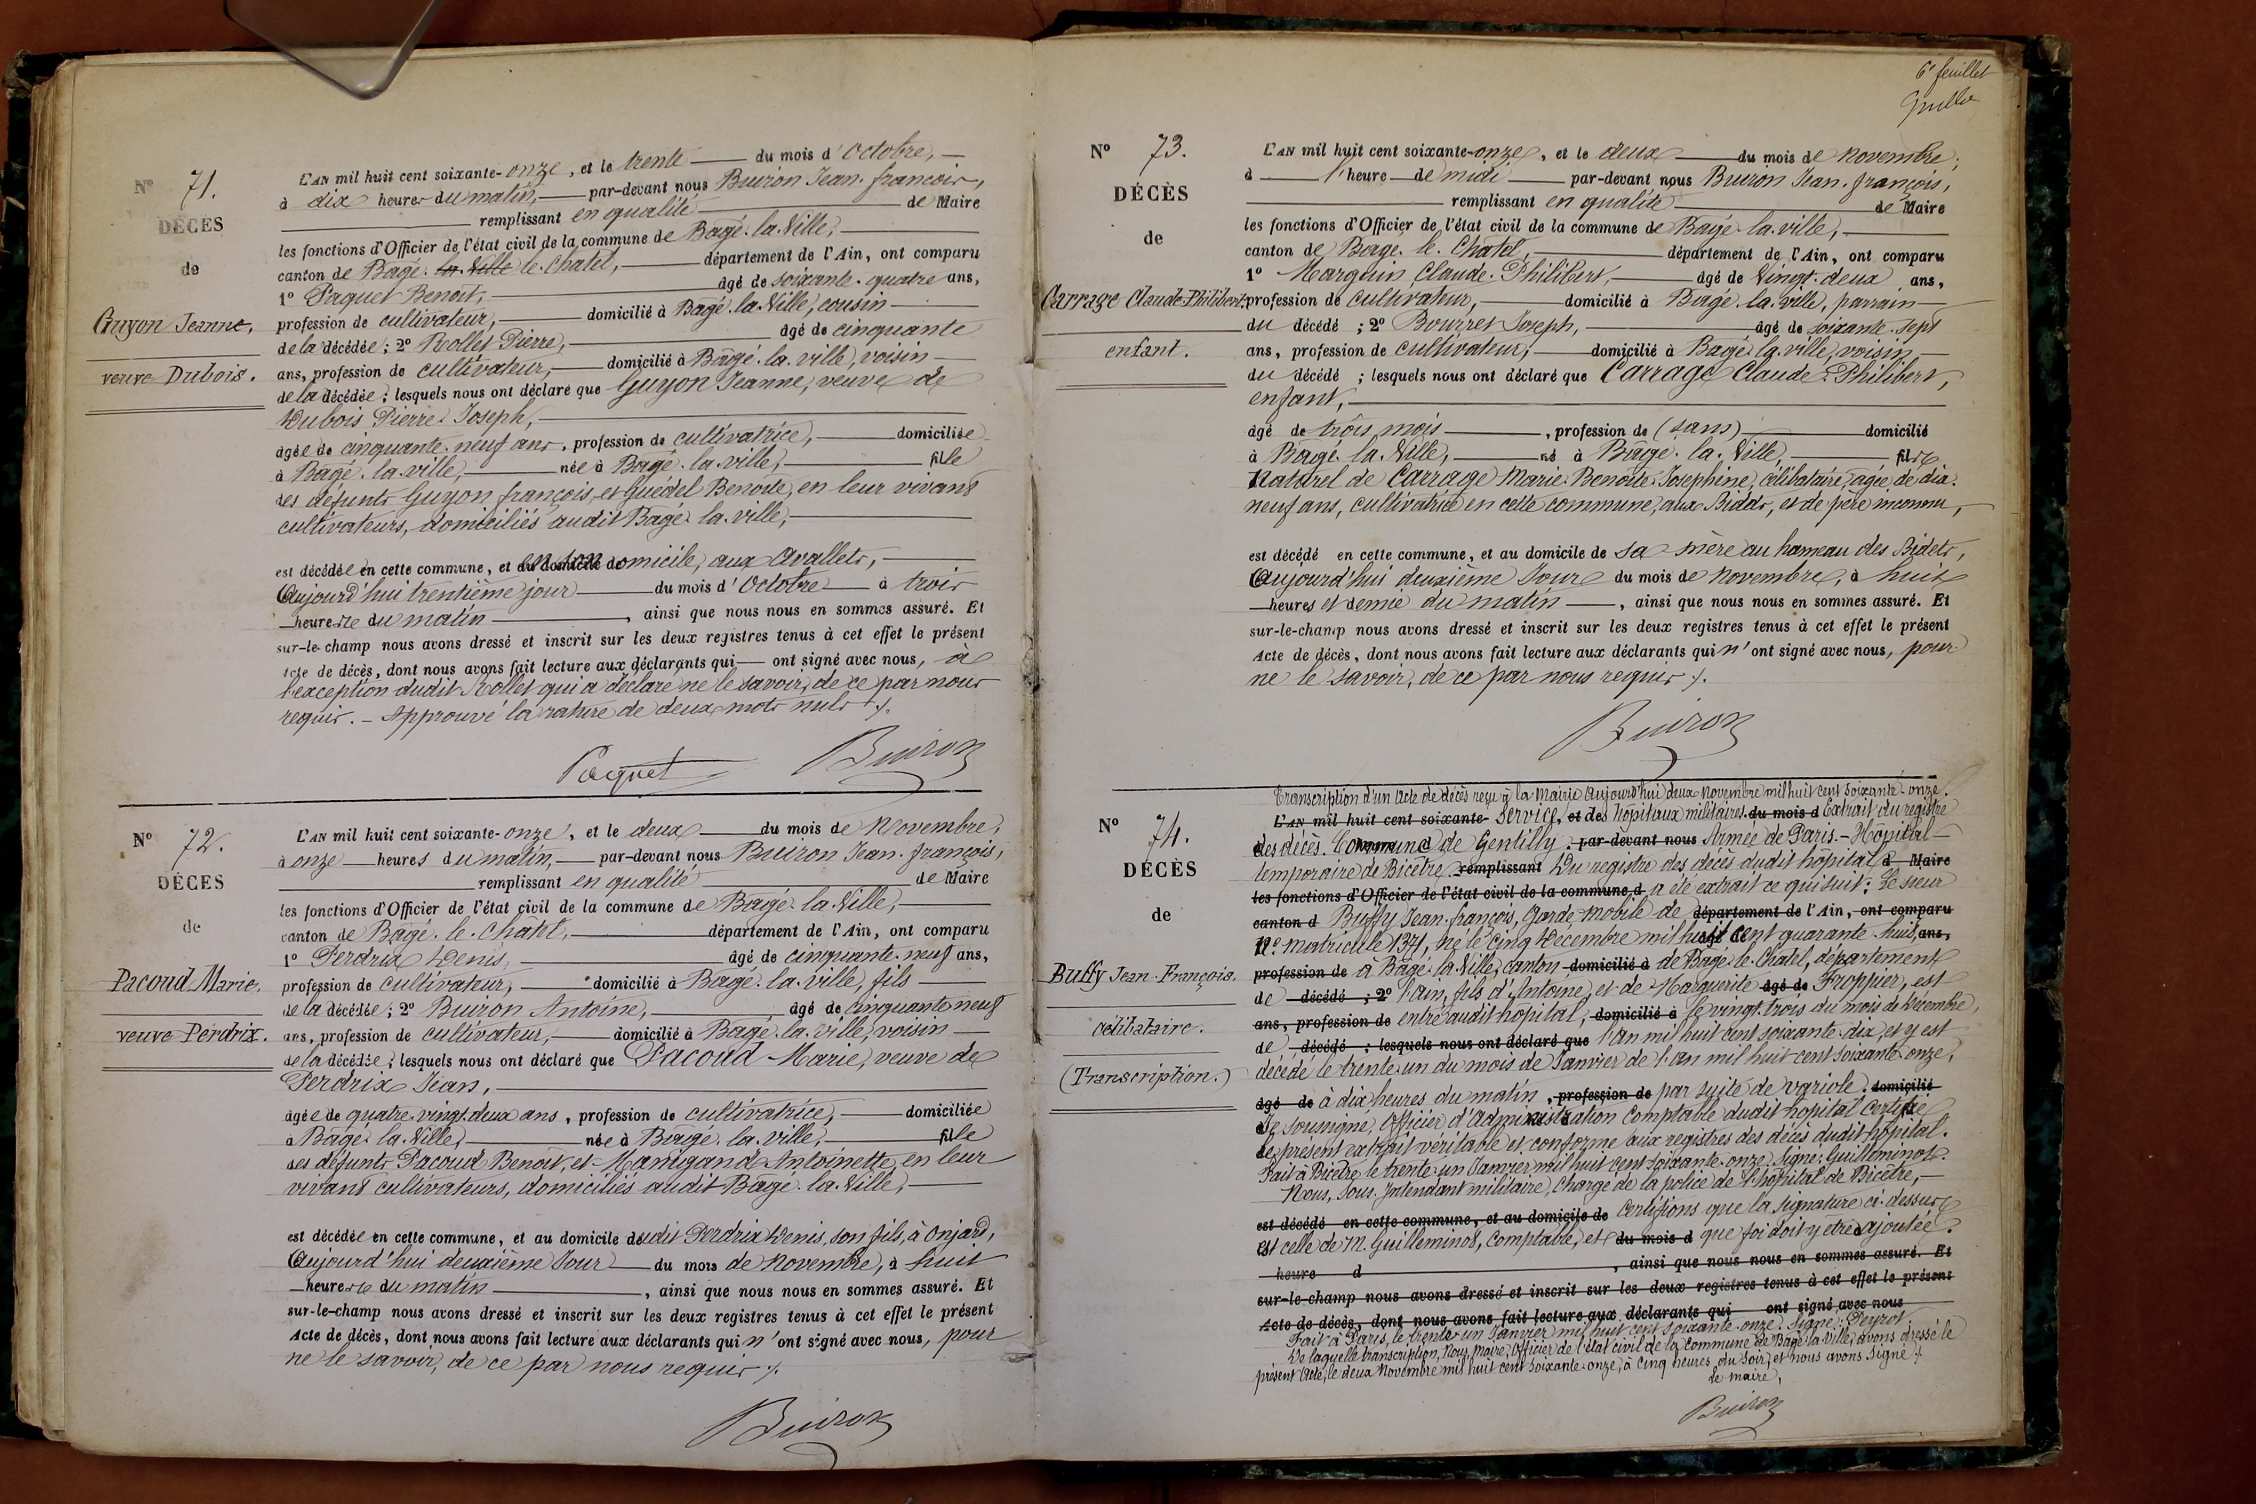 Nº 71.
DÉCÈS
de
Guyon Jeanne,
veuve Dubois.
L'AN mil huit cent soixante-onze, et le trente du mois d'Octobre,
à dix heures du matin, par-devant nous Buiron Jean-françois,
remplissant en qualité de Maire
les fonctions d'Officier de l'état civil de la commune de Bagé-la-Ville,
canton de Bagé-la-Ville le-Chatel, département de l'Ain, ont comparu
1º Paquet Benoit, âgé de soixante-quatre ans,
profession de cultivateur, domicilié à Bagé-la-Ville, cousin
de la décédée ; 2º Rollet Pierre, âgé de cinquante
ans, profession de cultivateur, domicilié à Bagé-la-ville, voisin
de la décédée ; lesquels nous ont déclaré que Guyon Jeanne, veuve de
Dubois Pierre-Joseph,
âgée de cinquante-neuf ans, profession de cultivatrice, domiciliée
à Bagé-la-ville, née à Bagé-la-ville, fille
des défunts Guyon françois, et Guédel Benoite, en leur vivant
cultivateurs, domiciliés audit Bagé-la-ville,
est décédée en cette commune, et au domicile de en son domicile, aux Avallets,
Aujourd'hui trentième jour du mois d'Octobre à trois
heures du matin, ainsi que nous nous en sommes assuré. Et
sur-le-champ nous avons dressé et inscrit sur les deux registres tenus à cet effet le présent
Acte de décès, dont nous avons fait lecture aux déclarants qui ont signé avec nous, à
l'exception dudit Rollet qui a déclaré ne le savoir, de ce par nous
requis. - Approuvé la rature de deux mots nuls ./.
Paquet Buiron
Nº 72.
DÉCÈS
de
Pacoud Marie,
veuve Perdrix.
L'AN mil huit cent soixante-onze, et le deux du mois de Novembre,
à onze heures du matin, par-devant nous Buiron Jean-françois,
remplissant en qualité de Maire
les fonctions d'Officier de l'état civil de la commune de Bagé-la-Ville,
canton de Bagé-le-Châtel, département de l'Ain, ont comparu
1º Perdrix Denis, âgé de cinquante-neuf ans,
profession de cultivateur, domicilié à Bagé-la-ville, fils
de la décédée ; 2º Buiron Antoine, âgé de cinquante neuf
ans, profession de cultivateur, domicilié à Bagé-la-ville, voisin
de la décédée ; lesquels nous ont déclaré que Pacoud Marie, veuve de
Perdrix Jean,
âgée de quatre-vingt-deux ans, profession de cultivatrice, domiciliée
à Bagé-la-Ville, née à Bagé-la-ville, fille
des défunts Pacoud Benoit, et Manigand Antoinette, en leur
vivant cultivateurs, domiciliés audit Bagé-la-Ville,
est décédée en cette commune, et au domicile dudit Perdrix Denis, son fils, à Onjard,
Aujourd'hui deuxième Jour du mois de Novembre, à huit
heures du matin, ainsi que nous nous en sommes assuré. Et
sur-le-champ nous avons dressé et inscrit sur les deux registres tenus à cet effet le présent
Acte de décès, dont nous avons fait lecture aux déclarants qui n'ont signé avec nous, pour
ne le savoir, de ce par nous requis ./.
Buiron
6e feuillet
Nº 73.
DÉCÈS
de
Carrage Claude-Philibert,
enfant.
L'AN mil huit cent soixante-onze, et le deux du mois de novembre,
à l'heure de midi par-devant nous Buiron Jean-françois,
remplissant en qualité de Maire
les fonctions d'Officier de l'état civil de la commune de Bagé-la-ville,
canton de Bagé-le-Chatel, département de l'Ain, ont comparu
1º Marguin Claude-Philibert, âgé de Vingt-deux ans,
profession de cultivateur, domicilié à Bagé-la-ville, parrain
du décédé ; 2º Bourret Joseph, âgé de soixante-sept
ans, profession de cultivateur, domicilié à Bagé-la-ville, voisin
du décédé ; lesquels nous ont déclaré que Carrage Claude-Philibert,
enfant,
âgé de trois mois, profession de (sans) domicilié
à Bagé-la-Ville, né à Bagé-la-Ville, fils
Naturel de Carrage Marie-Benoite-Josephine, célibataire, âgée de dix-
neuf ans, cultivatrice en cette commune, aux Bidets, et de père inconnu,
est décédé en cette commune, et au domicile de sa mère au hameau des Bidets,
Aujourd'hui deuxième Jour du mois de Novembre, à huit
heures et demie du matin, ainsi que nous nous en sommes assuré. Et
sur-le-champ nous avons dressé et inscrit sur les deux registres tenus à cet effet le présent
Acte de décès, dont nous avons fait lecture aux déclarants qui n'ont signé avec nous, pour
ne le savoir, de ce par nous requis ./.
Buiron
Nº 74.
DÉCÈS
de
Buffy Jean-François.
célibataire.
(Transcription.)
Transcription d'un Acte de décès reçu à la Mairie Aujourd'hui deux Novembre mil huit cent soixante-onze.
L'AN mil huit cent soixante- Service, et des hôpitaux militaires. du mois d Extrait du registre
des décès. Commune de Gentilly. par-devant nous Armée de Paris. - Hôpital
temporaire de Bicêtre. remplissant Du registre des décès dudit hôpital d Maire
les fonctions d'Officier de l'état civil de la commune d a été extrait ce qui suit : Le sieur
canton d Buffy Jean-françois, Garde mobile de département de l'Ain, ont comparu
Nº Matricule 1371, né le cinq Décembre mil huit âgé de cent quarante-huit, ans,
profession de à Bagé-la-Ville, canton domicilié à de Bagé-le-Chatel, département
de décédé ; 2º l'Ain, fils d'Antoine, et de Marguerite âgé de Froppier, est
ans, profession de entré audit hôpital, domicilié à le vingt-trois du mois de Décembre,
de décédé ; lesquels nous ont déclaré que l'An mil huit cent soixante-dix, et y est
décédé le trente-un du mois de Janvier de l'an mil huit cent soixante-onze,
âgé de à dix heures du matin, profession de par suite de variole. domicilié
Je soussigné, Officier d'Administration Comptable dudit hôpital certifie
le présent extrait véritable et conforme aux registres des décès dudit hôpital.
Fait à Bicêtre le trente-un Janvier mil huit cent soixante-onze. Signé : Guilleminot.
Nous, Sous-Intendant militaire, chargé de la police de l'hôpital de Bicêtre,
est décédé en cette commune, et au domicile de Certifions que la signature ci-dessus
est celle de M. Guilleminot, Comptable, et du mois d que foi doit y être ajoutée.
heure d , ainsi que nous nous en sommes assuré. Et
sur-le-champ nous avons dressé et inscrit sur les deux registres tenus à cet effet le présent
Acte de décès, dont nous avons fait lecture aux déclarants qui ont signé avec nous
Fait à Paris, le trente-un Janvier mil huit cent soixante-onze. Signé : Peyrot.
De laquelle transcription, Nous, maire, Officier de l'état civil de la commune de Bagé-la-Ville, avons dressé le
présent Acte, le deux Novembre mil huit cent soixante-onze, à cinq heures du soir, et nous avons signé ./.
Le maire,
Buiron